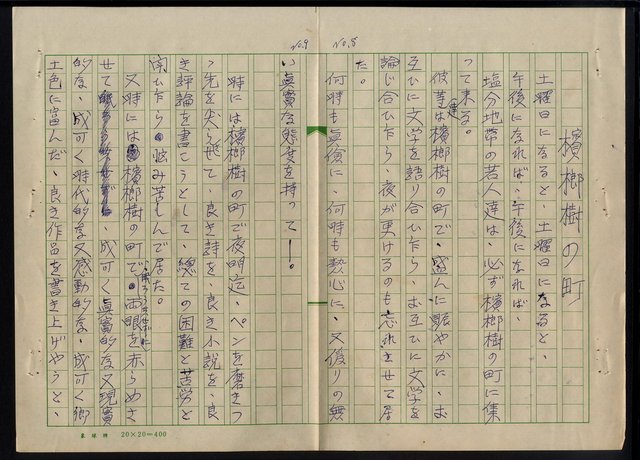 檳榔樹の町
土曜日になると、土曜日になると、
午後になれば、午後になれば、
塩分地帯の若人達は、必ず檳榔樹の町に集
って来る。
彼等は檳榔樹の町で、盛んに賑やかに、お
互ひに文学を語り合ひたら、お互ひに文学を
論じ合ひたら、夜が更けるのも忘れさせて居
た。
何時も真倹に、何時も熱心に、又偽りの無
い真實な態度を持って—。
時には檳榔樹の町で夜明迄、ペンを磨きつ
ゝ先を尖らせて、良き詩を、良き小説を、良
き評論を書こうとして、總ての困難と苦労と
闘ひたら、悩み苦しんで居た。
又時には檳榔樹の町で、両眼を赤らめさ
せて、成可く真實的な又現實
的な、成可く時代的な又感動的な、成可く郷
土色に富んだ、良き作品を書き上げやうと、
No.8
No.9
20×20=400